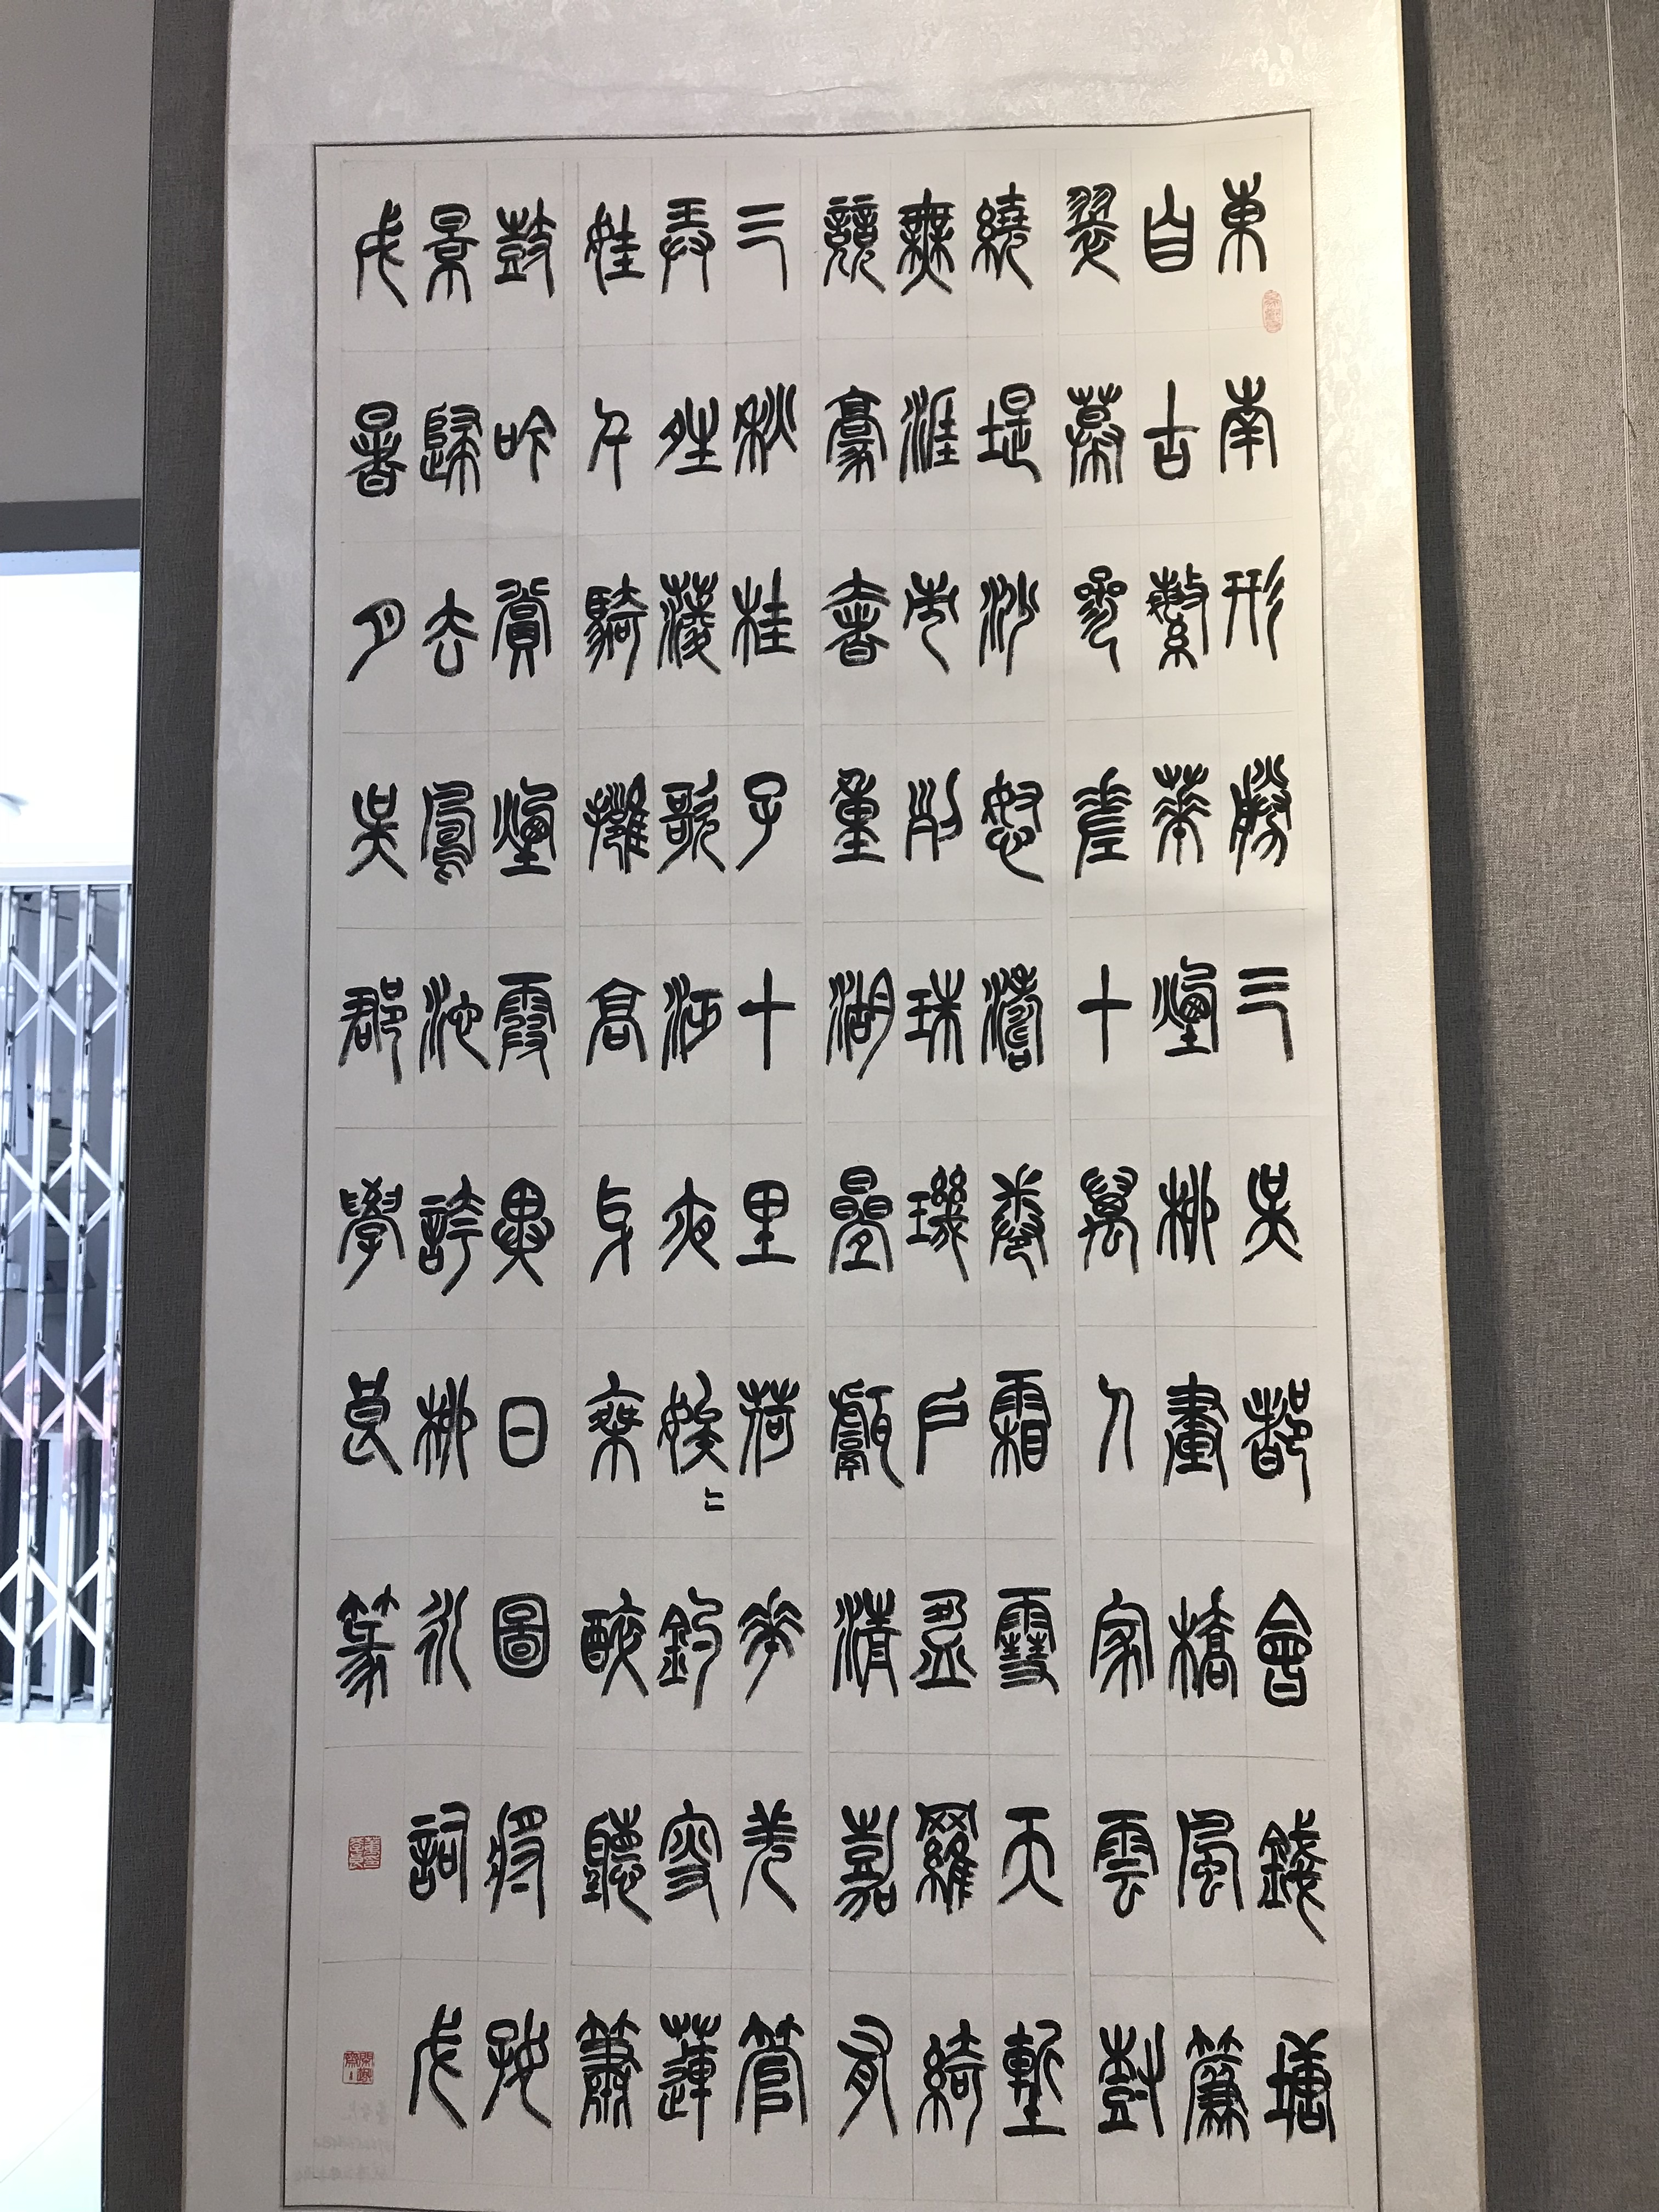 東南形勝三吳都會錢塘
自古繁華煙柳畫橋風簾
翠幕參差十萬人家雲樹
繞堤沙怒濤卷霜雪天塹
無涯市列珠璣戶盈羅綺
競豪奢重湖疊巘清嘉有
三秋桂子十里荷花羌管
弄晴菱歌泛夜嬉〻釣叟蓮
娃千騎擁高牙乘醉聽簫
鼓吟賞煙霞異日圖將好
景歸去鳳池誇柳永詞戊
戌暑月吳郡學良篆